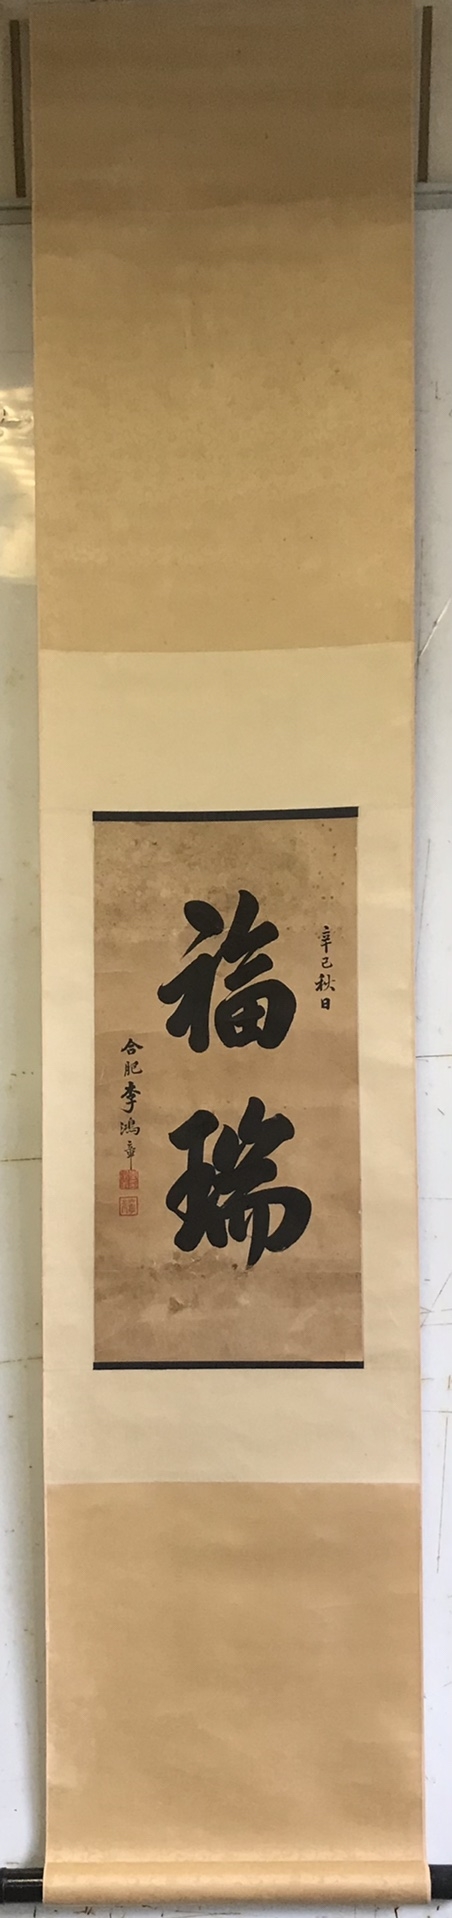 辛巳秋日
福瑞
合肥李鴻章